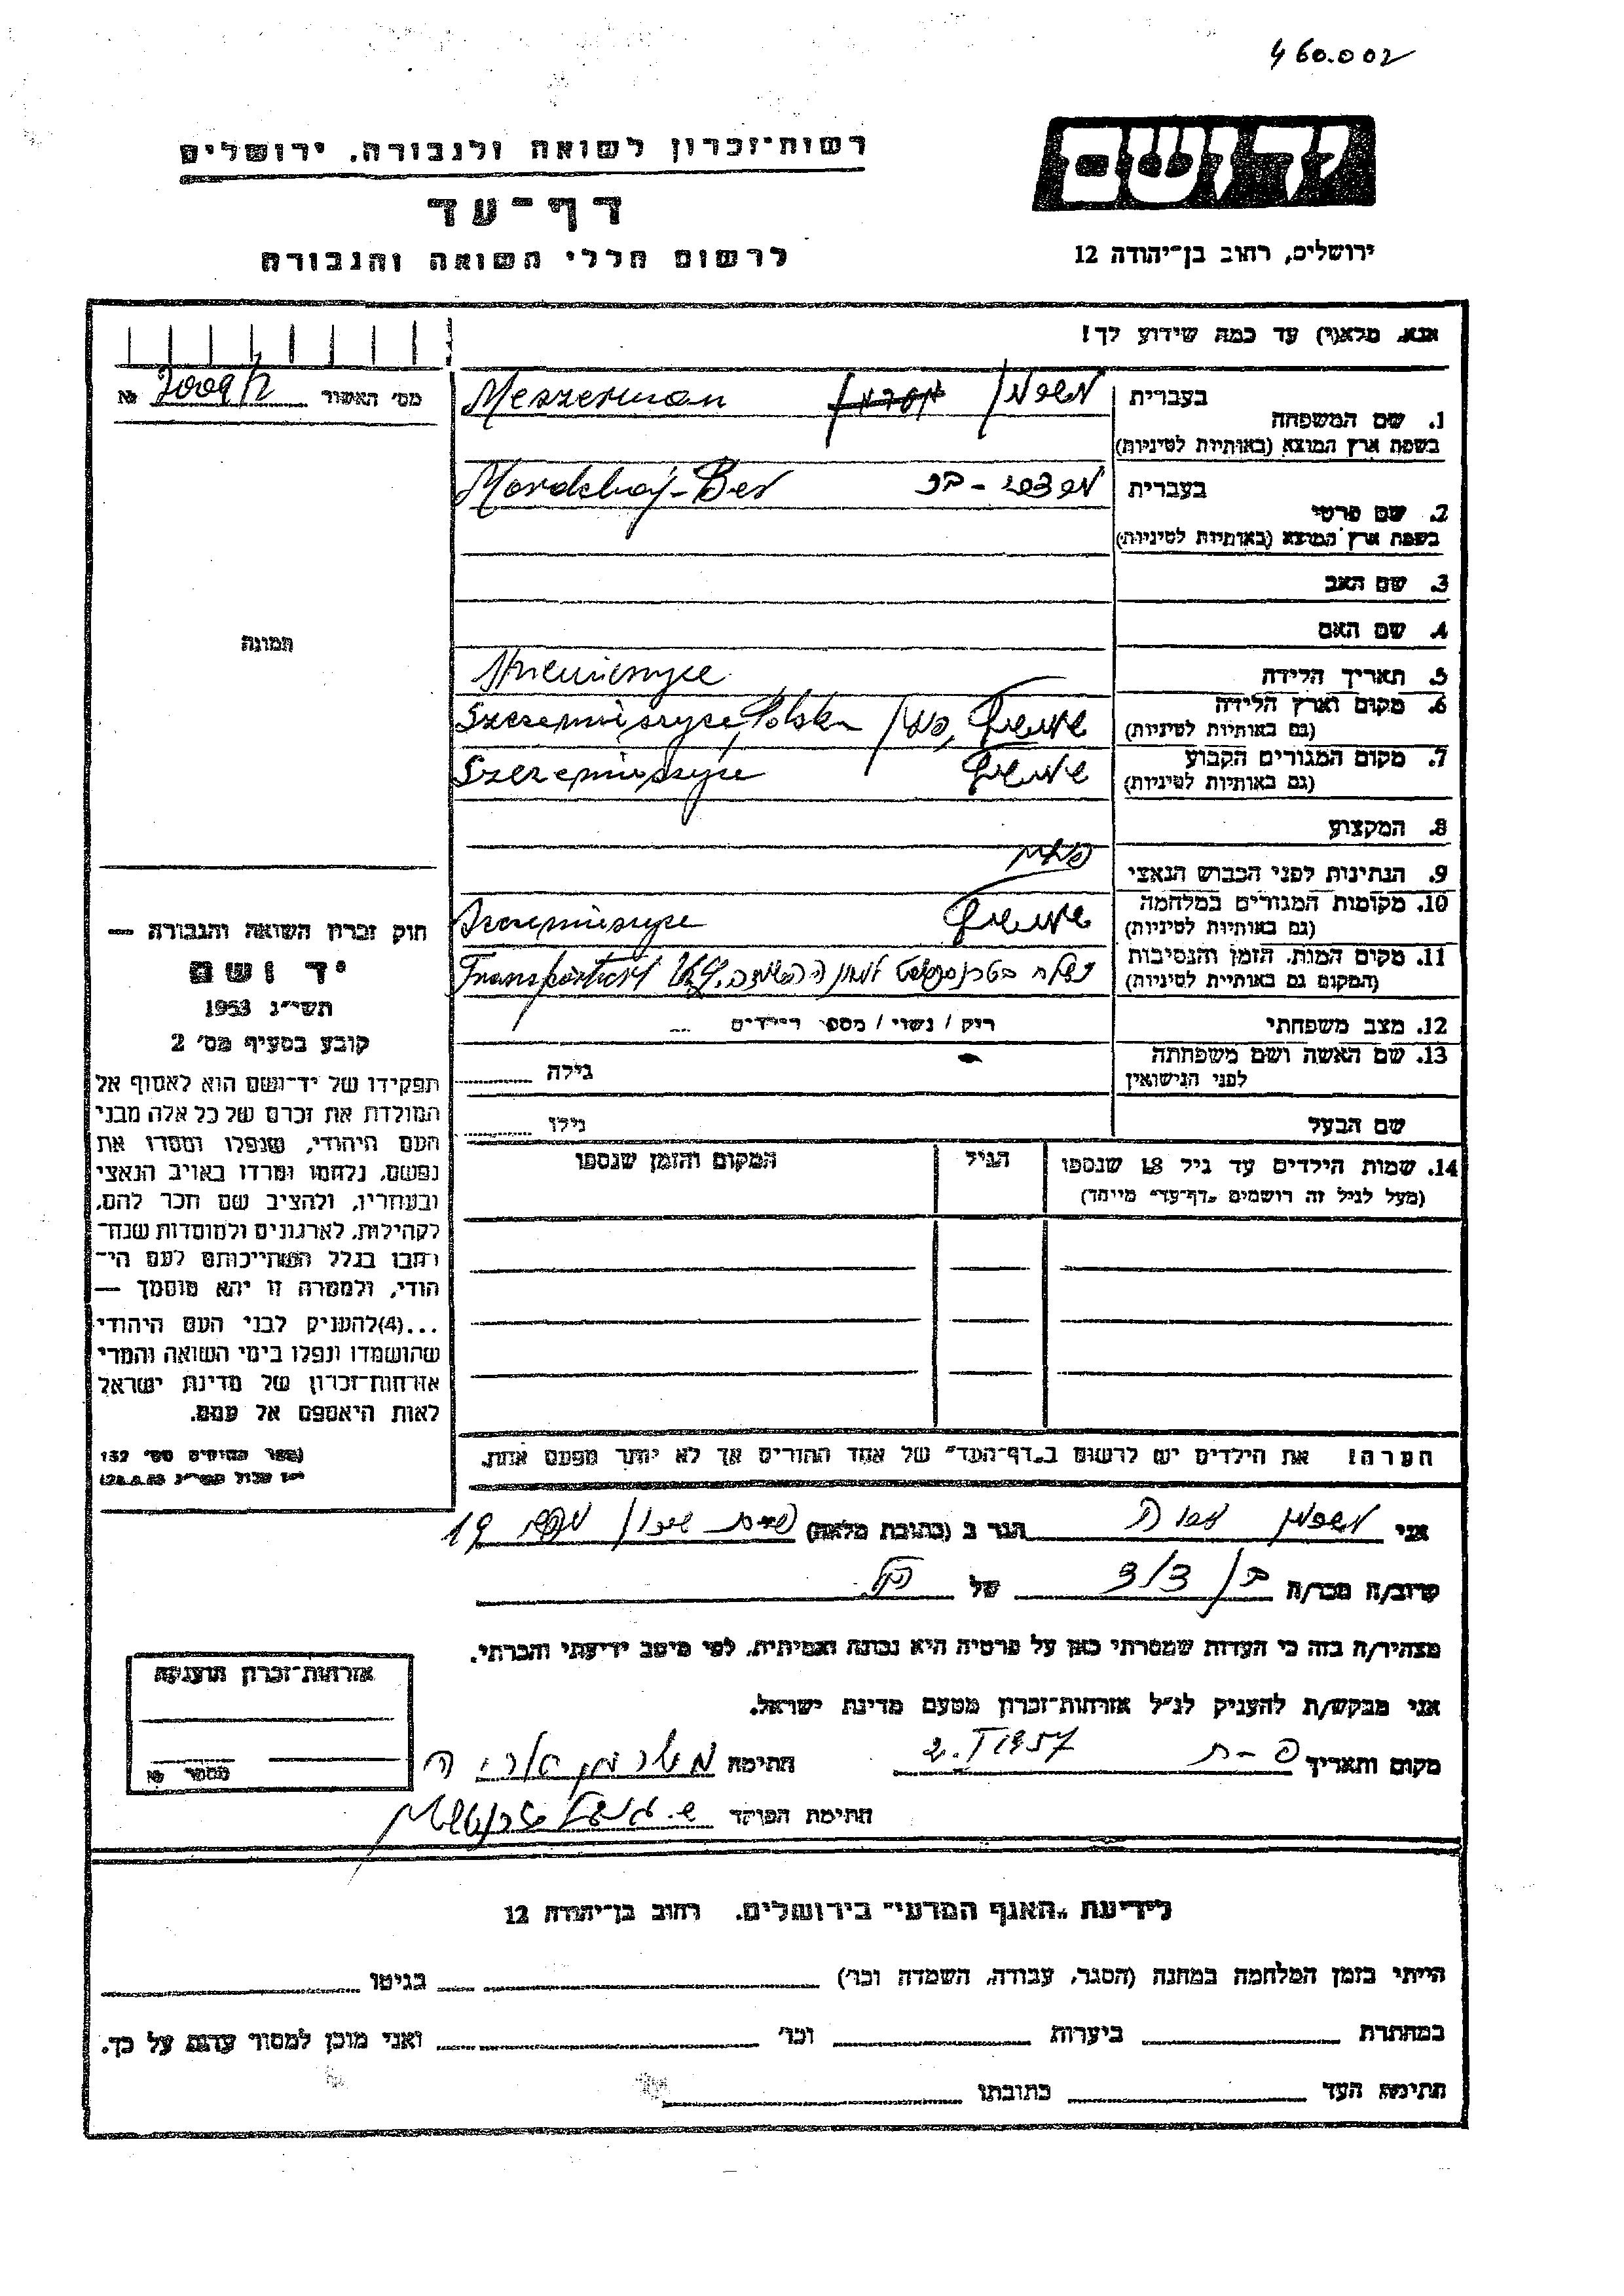 460.002
ידושם
רשות־זכרון לשואה ולגבורה. ירושלים
דף־עד
לרשום חללי השואה והגבורה
ירושלים, רחוב בן־יהודה 12
אנא, מלא(י) עד כמה שידוע לך!
מס׳ האשור № 7009/2
1. שם המשפחה
בעברית
Meszerman
בשפת ארץ המוצא (באותיות לטיניות)
2. שם פרטי
בעברית
מרדכי - בר
Mordchaj-Ber
בשפת ארץ המוצא (באותיות לטיניות)
3. שם האב
4. שם האם
תמונה
5. תאריך הלידה
6. מקום וארץ הלידה
(גם באותיות לטיניות)
פולין
Polska
7. מקום המגורים הקבוע
(גם באותיות לטיניות)
8. המקצוע
9. הנתינות לפני הכבוש הנאצי
פולנית
10. מקומות המגורים במלחמה
(גם באותיות לטיניות)
11. מקום המות, הזמן והנסיבות
(המקום גם באותיות לטיניות)
נשלח בטרנספורט
12. מצב משפחתי
רוק / נשוי / מספר הילדים
13. שם האשה ושם משפחתה
לפני הנישואין
גילה
שם הבעל
גילו
14. שמות הילדים עד גיל 18 שנספו
(מעל לגיל זה רושמים „דף־עד״ מיוחד)
הגיל
המקום והזמן שנספו
חוק זכרון השואה והגבורה —
יד ושם
תשי״ג 1953
קובע בסעיף מס׳ 2
תפקידו של יד־ושם הוא לאסוף אל
המולדת את זכרם של כל אלה מבני
העם היהודי, שנפלו ומסרו את
נפשם, נלחמו ומרדו באויב הנאצי
ובעוזריו, ולהציב שם וזכר להם,
לקהילות, לארגונים ולמוסדות שנח־
רבו בגלל השתייכותם לעם הי־
הודי, ולמטרה זו יהא מוסמך —
...(4)להעניק לבני העם היהודי
שהושמדו ונפלו בימי השואה והמרי
אזרחות־זכרון של מדינת ישראל
לאות היאספם אל עמם.
(ספר החוקים מס׳ 132
הערה! את הילדים יש לרשום ב„דף־העד״ של אחד ההורים אך לא יותר מפעם אחת.
אני
הגר ב (כתובת מלאה)
19
קרוב/ה מכר/ה בן דוד של הנ״ל
מצהיר/ה בזה כי העדות שמסרתי כאן על פרטיה היא נכונה ואמיתית, לפי מיטב ידיעתי והכרתי.
אני מבקש/ת להעניק לנ״ל אזרחות־זכרון מטעם מדינת ישראל.
מקום ותאריך פ-ת 2.I 1957 חתימה
חתימת הפוקד
אזרחות־זכרון הוענקה
מספר №
לידיעת „האגף המדעי״ בירושלים. רחוב בן־יהודה 12
הייתי בזמן המלחמה במחנה (הסגר, עבודה, השמדה וכו׳) בגיטו
במחתרת ביערות וכו׳ ואני מוכן למסור עדות על כך.
חתימת העד כתובתו